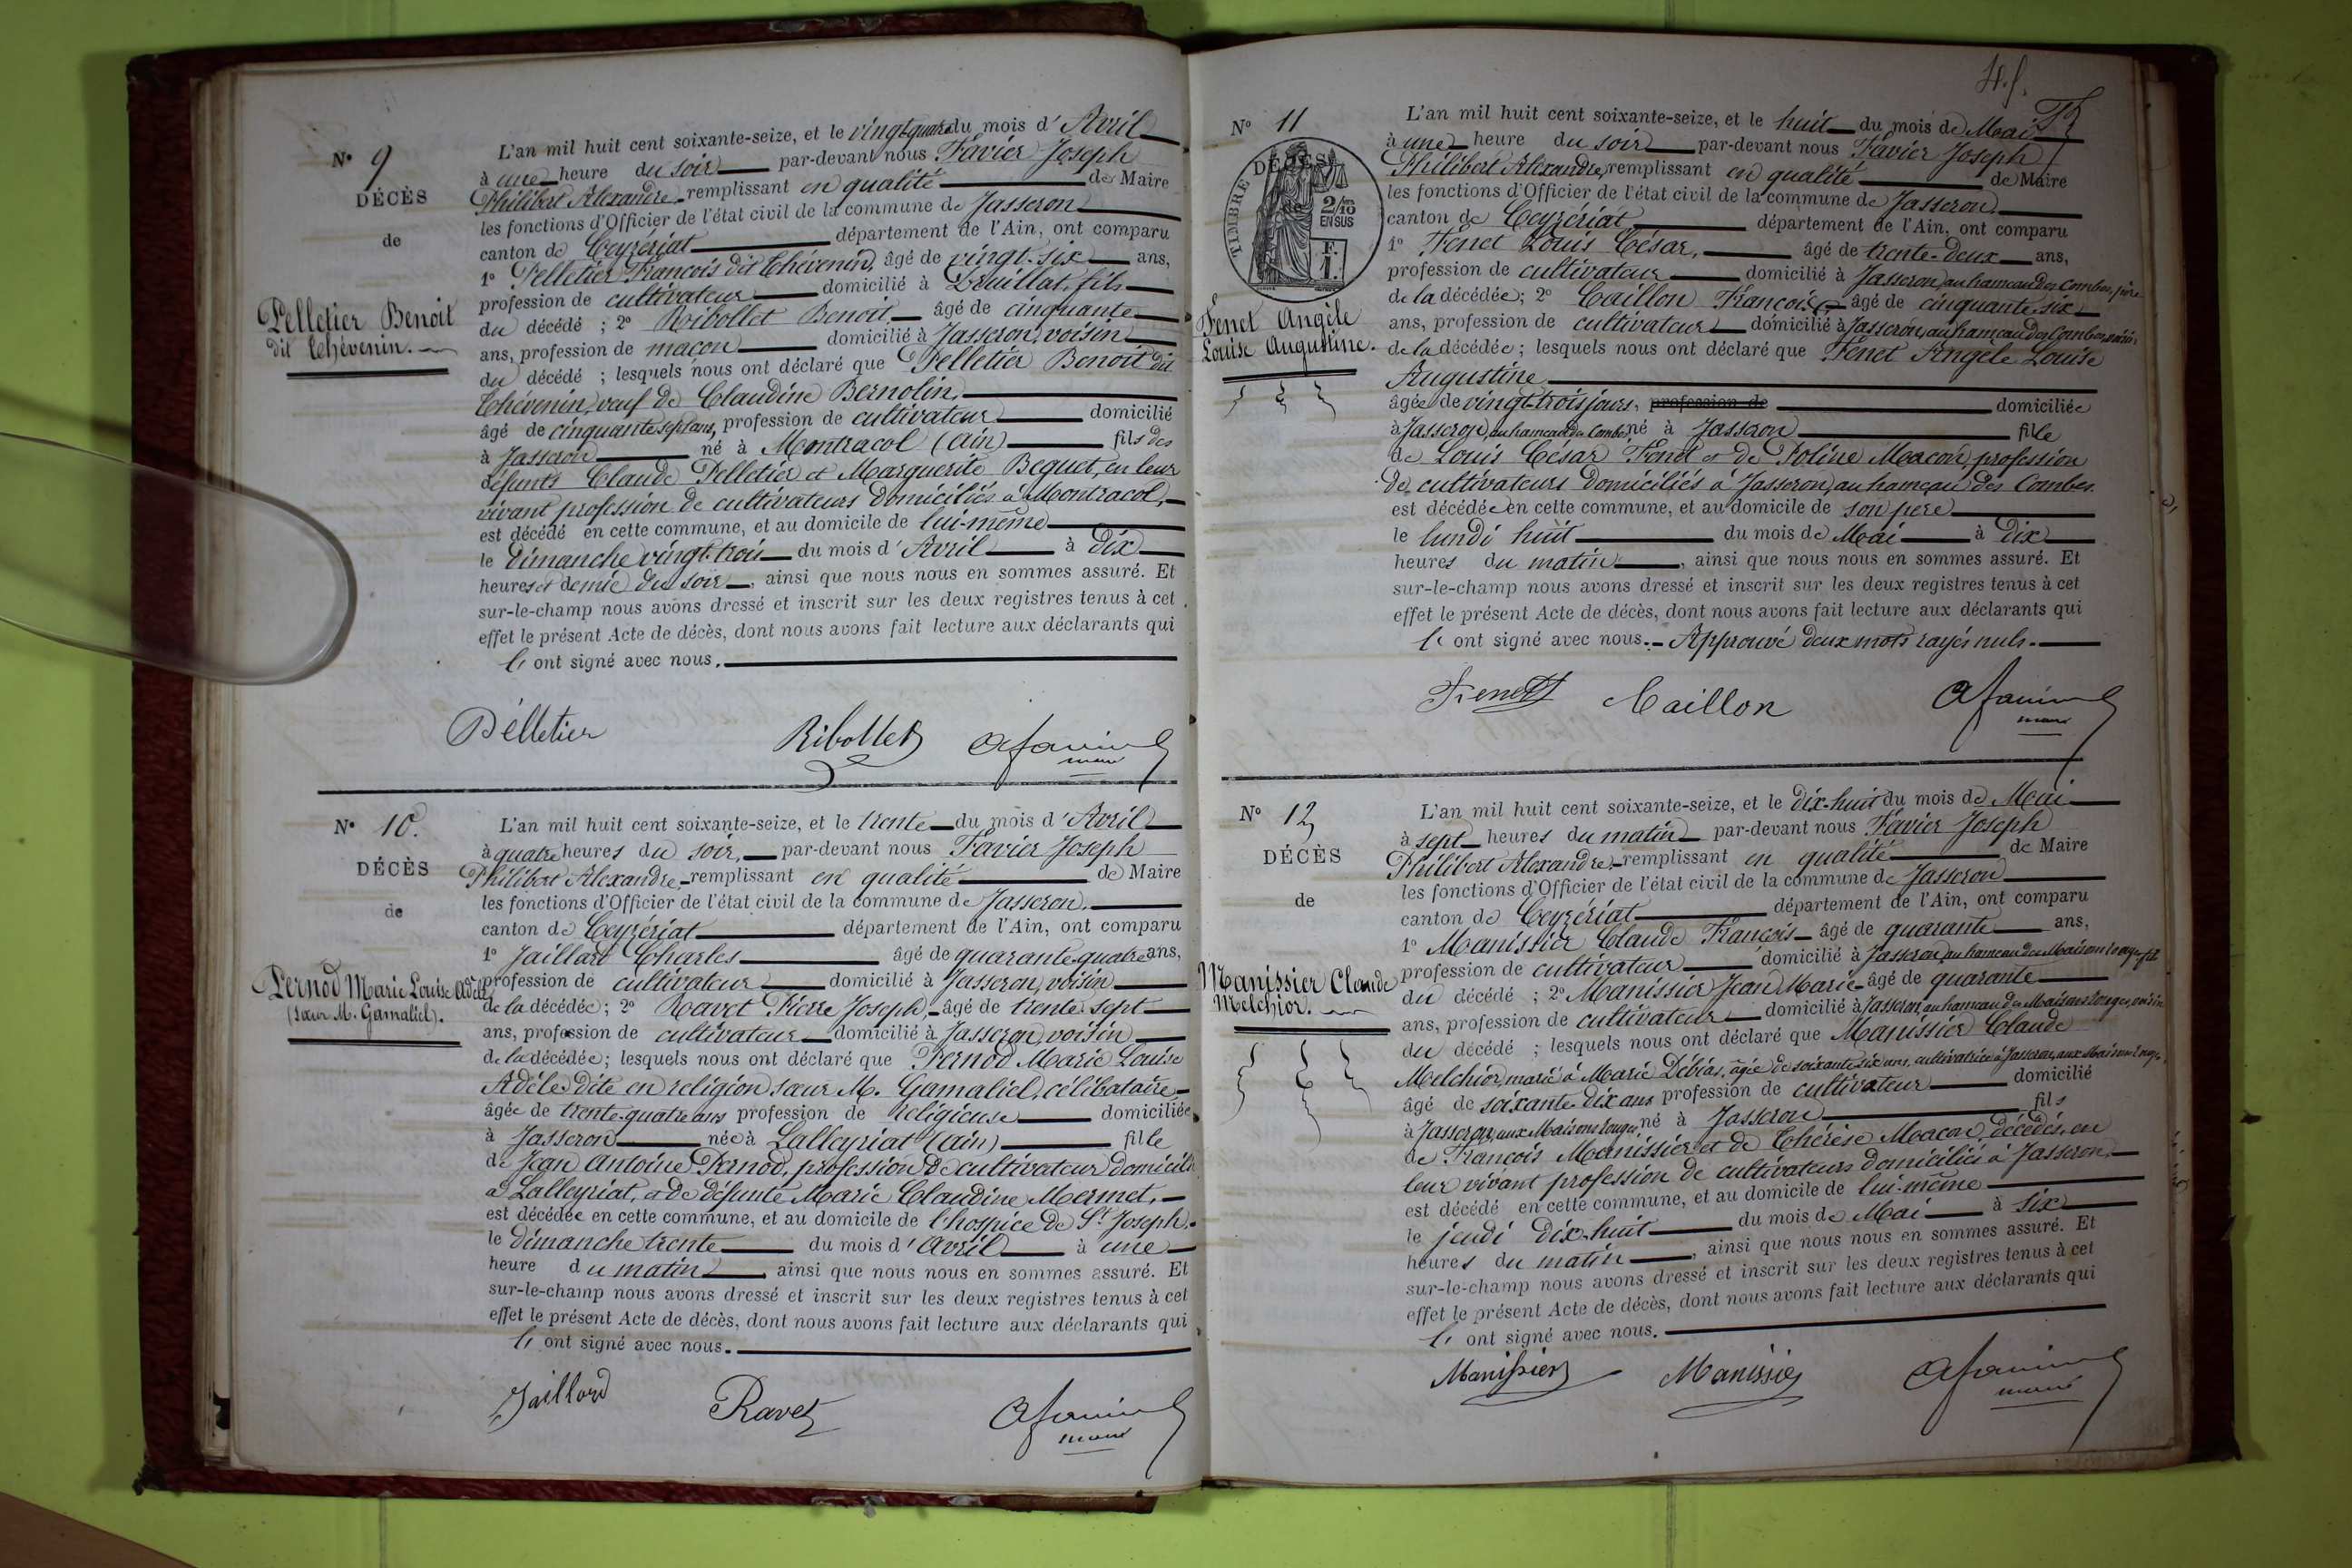 N° 9
DÉCÈS
de
Pelletier Benoit
dit Chévenin.
L'an mil huit cent soixante-seize, et le vingt-quatre du mois d'Avril
à une heure du soir par-devant nous Favier Joseph
Philibert Alexandre, remplissant en qualité de Maire
les fonctions d'Officier de l'état civil de la commune de Jasseron
canton de Ceyzériat département de l'Ain, ont comparu
1° Pelletier François dit Chévenin, âgé de vingt-six ans,
profession de cultivateur domicilié à Drouillat, fils
du décédé ; 2° Ribollet Benoit âgé de cinquante
ans, profession de maçon domicilié à Jasseron, voisin
du décédé ; lesquels nous ont déclaré que Pelletier Benoit dit
Chévenin, veuf de Claudine Bernolin,
âgé de cinquante sept ans, profession de cultivateur domicilié
à Jasseron né à Montracol (Ain) fils des
défunts Claude Pelletier et Marguerite Bequet, en leur
vivant profession de cultivateurs domiciliés à Montracol,
est décédé en cette commune, et au domicile de lui-même
le dimanche vingt-trois du mois d'Avril à dix
heures et demie du soir, ainsi que nous nous en sommes assuré. Et
sur-le-champ nous avons dressé et inscrit sur les deux registres tenus à cet
effet le présent Acte de décès, dont nous avons fait lecture aux déclarants qui
l'ont signé avec nous.
Pelletier Ribollet Afavier
maire
N° 10.
DÉCÈS
de
Pernod Marie Louise Adèle
(sœur M. Gamaliel).
L'an mil huit cent soixante-seize, et le trente du mois d'Avril
à quatre heures du soir, par-devant nous Favier Joseph
Philibert Alexandre, remplissant en qualité de Maire
les fonctions d'Officier de l'état civil de la commune de Jasseron.
canton de Ceyzériat département de l'Ain, ont comparu
1° Jaillard Charles âgé de quarante-quatre ans,
profession de cultivateur domicilié à Jasseron, voisin
de la décédée ; 2° Ravet Pierre Joseph, âgé de trente-sept
ans, profession de cultivateur domicilié à Jasseron, voisin
de la décédée ; lesquels nous ont déclaré que Pernod Marie Louise
Adèle dite en religion sœur M. Gamaliel, célibataire,
âgée de trente-quatre ans profession de religieuse domiciliée
à Jasseron née à Lalleyriat (Ain) fille
de Jean Antoine Pernod, profession de cultivateur domicilié
à Lalleyriat, et de défunte Marie Claudine Mermet,
est décédée en cette commune, et au domicile de l'hospice de St Joseph,
le dimanche trente du mois d'Avril à une
heure du matin, ainsi que nous nous en sommes assuré. Et
sur-le-champ nous avons dressé et inscrit sur les deux registres tenus à cet
effet le présent Acte de décès, dont nous avons fait lecture aux déclarants qui
l'ont signé avec nous.
Jaillard Ravet Afavier
maire
N° 11
DÉCÈS
de
TIMBRE
2/10
EN SUS
Fenet Angèle
Louise Augustine.
L'an mil huit cent soixante-seize, et le huit du mois de Mai
à une heure du soir par-devant nous Favier Joseph
Philibert Alexandre, remplissant en qualité de Maire
les fonctions d'Officier de l'état civil de la commune de Jasseron
canton de Ceyzériat département de l'Ain, ont comparu
1° Fenet Louis César, âgé de trente-deux ans,
profession de cultivateur domicilié à Jasseron, au hameau des Combes, père
de la décédée ; 2° Caillon François, âgé de cinquante-six
ans, profession de cultivateur domicilié à Jasseron, au hameau des Combes, voisin
de la décédée ; lesquels nous ont déclaré que Fenet Angèle Louise
Augustine
âgée de vingt-trois jours, profession de domiciliée
à Jasseron, au hameau des Combes né à Jasseron fille
de Louis César Fenet et de Foline Macon, profession
de cultivateurs domiciliés à Jasseron, au hameau des Combes.
est décédée en cette commune, et au domicile de son père
le lundi huit du mois de Mai à dix
heures du matin, ainsi que nous nous en sommes assuré. Et
sur-le-champ nous avons dressé et inscrit sur les deux registres tenus à cet
effet le présent Acte de décès, dont nous avons fait lecture aux déclarants qui
l'ont signé avec nous. - Approuvé deux mots rayés nuls.
Fenet Caillon Afavier
maire
N° 12
DÉCÈS
de
Manissier Claude
Melchior.
L'an mil huit cent soixante-seize, et le dix-huit du mois de Mai
à sept heures du matin par-devant nous Favier Joseph
Philibert Alexandre, remplissant en qualité de Maire
les fonctions d'Officier de l'état civil de la commune de Jasseron
canton de Ceyzériat département de l'Ain, ont comparu
1° Manissier Claude François âgé de quarante ans,
profession de cultivateur domicilié à Jasseron, au hameau des Maisons rouges, fils
du décédé ; 2° Manissier Jean Marie âgé de quarante
ans, profession de cultivateur domicilié à Jasseron, au hameau des Maisons rouges, voisin
du décédé ; lesquels nous ont déclaré que Manissier Claude
Melchior, marié à Marie Débias, âgée de soixante-six ans, cultivatrice à Jasseron, aux Maisons rouges,
âgé de soixante-dix ans profession de cultivateur domicilié
à Jasseron, aux Maisons rouges, né à Jasseron fils
de François Manissier et de Thérèse Macon, décédés, en
leur vivant profession de cultivateurs domiciliés à Jasseron,
est décédé en cette commune, et au domicile de lui-même
le jeudi dix-huit du mois de Mai à six
heures du matin, ainsi que nous nous en sommes assuré. Et
sur-le-champ nous avons dressé et inscrit sur les deux registres tenus à cet
effet le présent Acte de décès, dont nous avons fait lecture aux déclarants qui
l'ont signé avec nous.
Manissier Manissier Afavier
maire